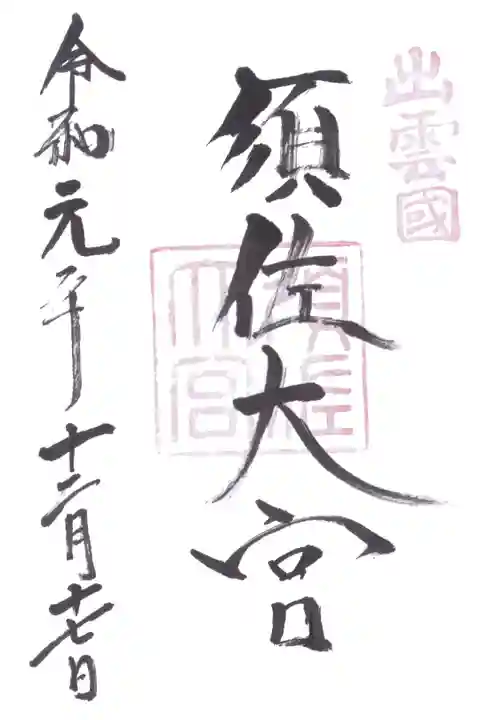 出雲國
須佐大宮
須佐大宮
令和元年十二月十七日